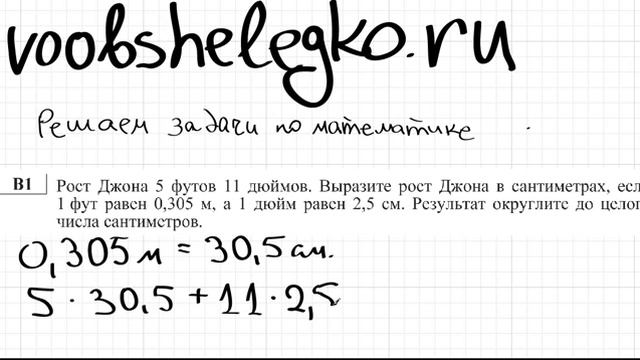 voobshelegko.ru
Решаем задачи по математике
B1 Рост Джона 5 футов 11 дюймов. Выразите рост Джона в сантиметрах, есл
1 фут равен 0,305 м, а 1 дюйм равен 2,5 см. Результат округлите до целог
числа сантиметров.
0,305 м = 30,5 см.
5 · 30,5 + 11 · 2,5